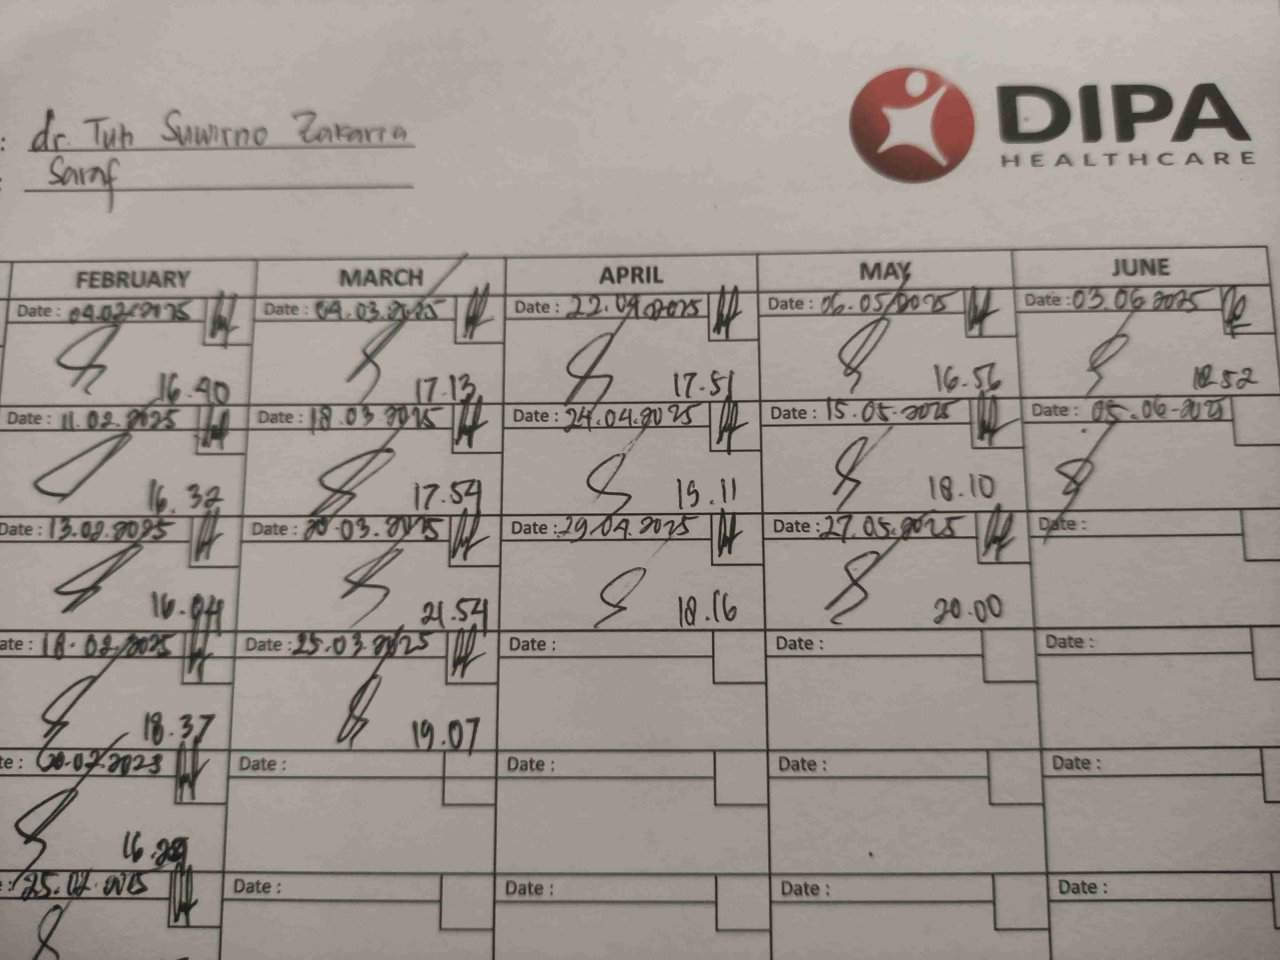 : dr. Tuh Suwirno Zakaria
: Saraf
DIPA
HEALTHCARE
FEBRUARY MARCH APRIL MAY JUNE
Date : 04.02.2025 Date : 04.03.2025 Date : 22.04.2025 Date : 06.05.2025 Date : 03.06.2025
16.40 17.13 17.51 16.56 18.52
Date : 11.02.2025 Date : 18.03.2025 Date : 24.04.2025 Date : 15.05.2025 Date : 05.06.2025
16.32 17.54 19.11 18.10
Date : 13.02.2025 Date : 20.03.2025 Date : 29.04.2025 Date : 27.05.2025 Date :
16.04 21.54 18.16 20.00
ate : 18.02.2025 Date : 25.03.2025 Date : Date : Date :
18.37 19.07
te : 20.02.2025 Date : Date : Date : Date :
16.
e : 25.02.2025 Date : Date : Date : Date :